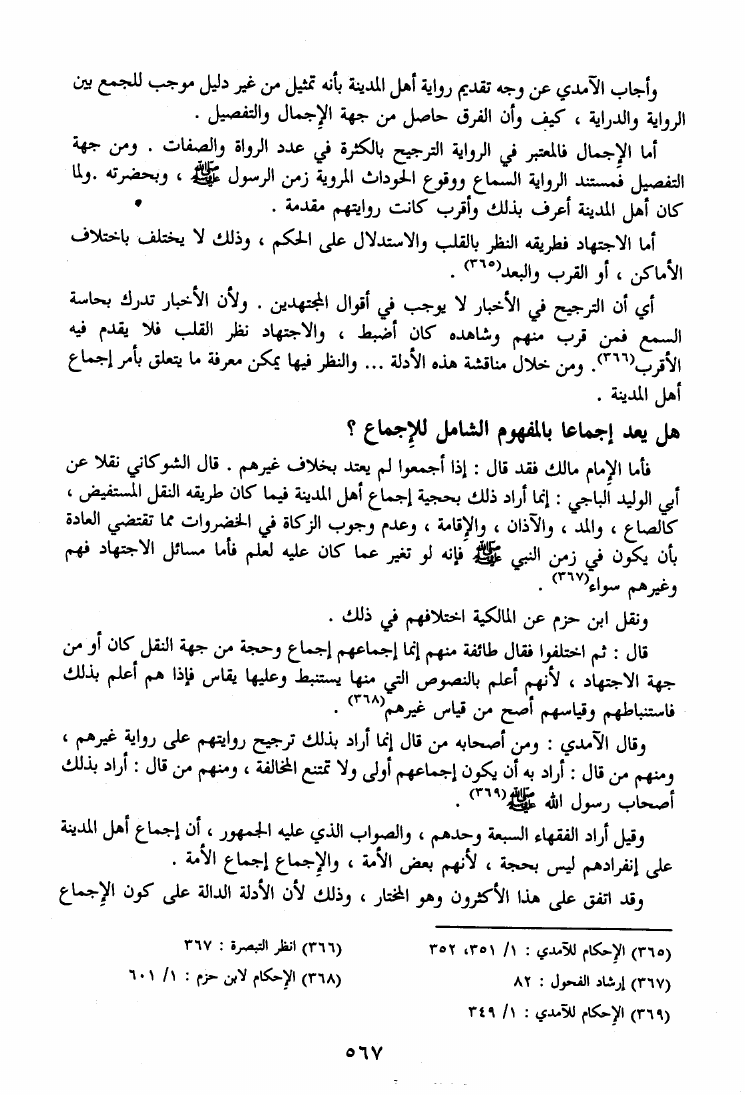 وأجاب الآمدي عن وجه تقديم رواية أهل المدينة بأنه تمثيل من غير دليل موجب للجمع بين
الرواية والدراية ، كيف وأن الفرق حاصل من جهة الإجمال والتفصيل .
أما الإجمال فالمعتبر في الرواية الترجيح بالكثرة في عدد الرواة والصفات . ومن جهة
التفصيل فمستند الرواية السماع ووقوع الحوداث المروية زمن الرسول ﷺ ، وبحضرته .ولما
كان أهل المدينة أعرف بذلك وأقرب كانت روايتهم مقدمة .
أما الاجتهاد فطريقه النظر بالقلب والاستدلال على الحكم ، وذلك لا يختلف باختلاف
الأماكن ، أو القرب والبعد(٣٦٥) .
أي أن الترجيح في الأخبار لا يوجب في أقوال المجتهدين . ولأن الأخبار تدرك بحاسة
السمع فمن قرب منهم وشاهده كان أضبط ، والاجتهاد نظر القلب فلا يقدم فيه
الأقرب(٣٦٦). ومن خلال مناقشة هذه الأدلة ... والنظر فيها يمكن معرفة ما يتعلق بأمر إجماع
أهل المدينة .
هل يعد إجماعا بالمفهوم الشامل للإجماع ؟
فأما الإمام مالك فقد قال : إذا أجمعوا لم يعتد بخلاف غيرهم . قال الشوكاني نقلا عن
أبي الوليد الباجي : إنما أراد ذلك بحجية إجماع أهل المدينة فيما كان طريقه النقل المستفيض ،
كالصاع ، والمد ، والآذان ، والإقامة ، وعدم وجوب الزكاة في الخضروات مما تقتضي العادة
بأن يكون في زمن النبي ﷺ فإنه لو تغير عما كان عليه لعلم فأما مسائل الاجتهاد فهم
وغيرهم سواء(٣٦٧) .
ونقل ابن حزم عن المالكية اختلافهم في ذلك .
قال : ثم اختلفوا فقال طائفة منهم إنما إجماعهم إجماع وحجة من جهة النقل كان أو من
جهة الاجتهاد ، لأنهم أعلم بالنصوص التي منها يستنبط وعليها يقاس فإذا هم أعلم بذلك
فاستنباطهم وقياسهم أصح من قياس غيرهم(٣٦٨) .
وقال الآمدي : ومن أصحابه من قال إنما أراد بذلك ترجيح روايتهم على رواية غيرهم ،
ومنهم من قال : أراد به أن يكون إجماعهم أولى ولا تمتنع المخالفة ، ومنهم من قال : أراد بذلك
أصحاب رسول الله ﷺ(٣٦٩) .
وقيل أراد الفقهاء السبعة وحدهم ، والصواب الذي عليه الجمهور ، أن إجماع أهل المدينة
على إنفرادهم ليس بحجة ، لأنهم بعض الأمة ، والإجماع إجماع الأمة .
وقد اتفق على هذا الأكثرون وهو المختار ، وذلك لأن الأدلة الدالة على كون الإجماع
(٣٦٥) الإحكام للآمدي : ١/ ٣٥١، ٣٥٢
(٣٦٦) انظر التبصرة : ٣٦٧
(٣٦٧) إرشاد الفحول : ٨٢
(٣٦٨) الإحكام لابن حزم : ١/ ٦٠١
(٣٦٩) الإحكام للآمدي : ١/ ٣٤٩
٥٦٧